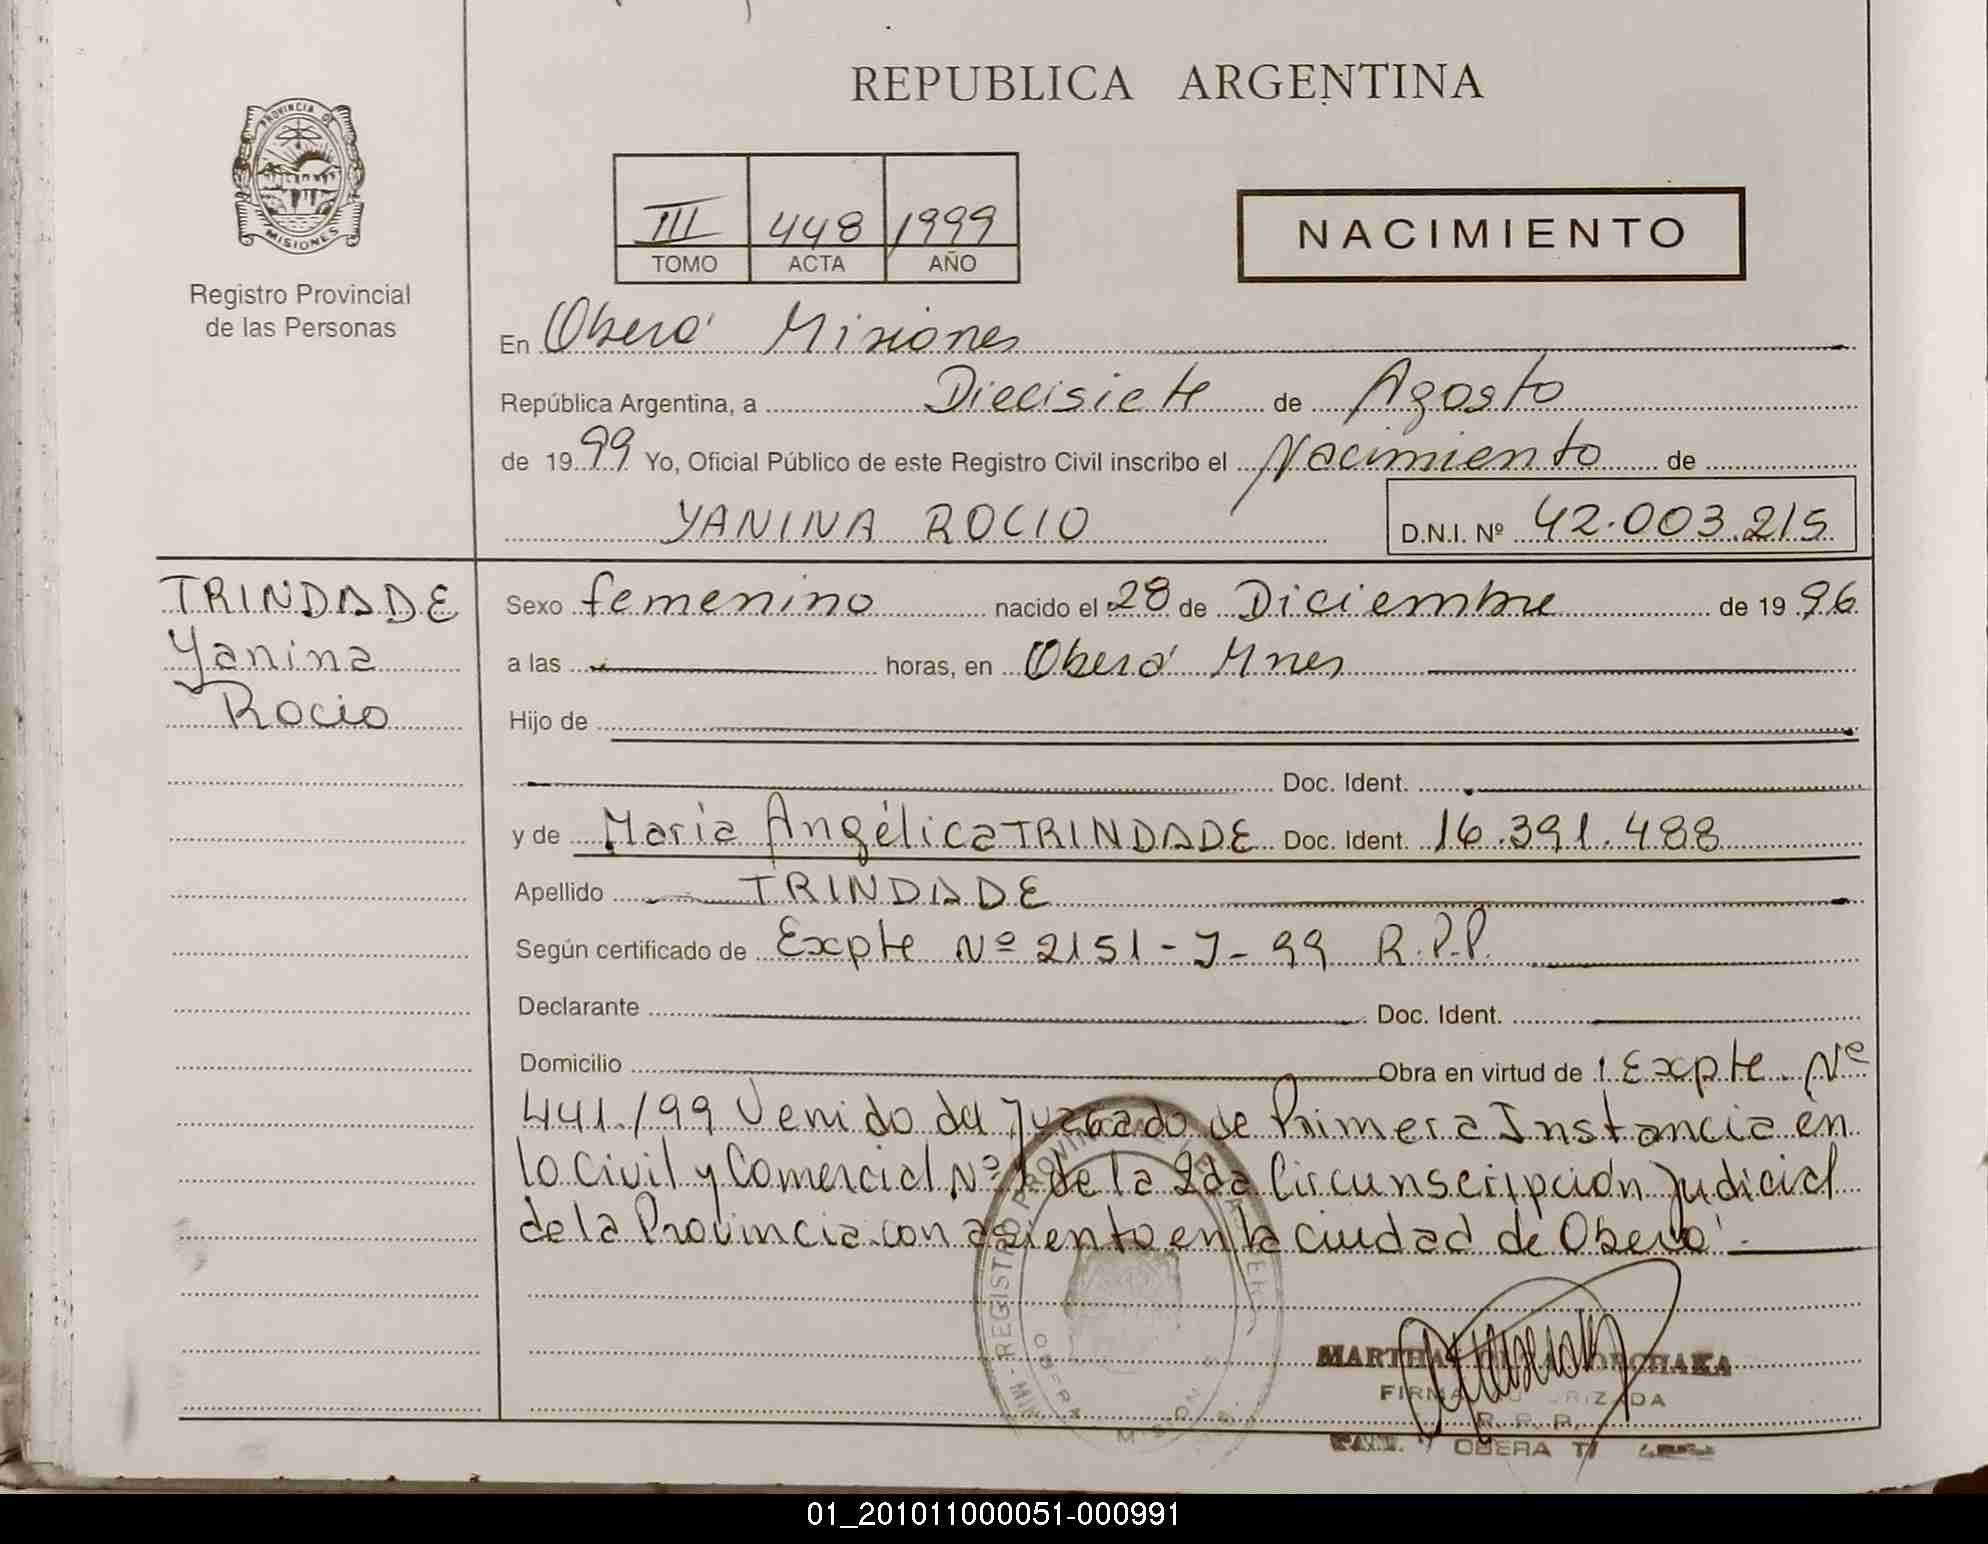 REPUBLICA ARGENTINA
PROVINCIA DE
MISIONES
Registro Provincial
de las Personas
III 448 1999
TOMO ACTA AÑO
NACIMIENTO
En Oberá Misiones
República Argentina, a Diecisiete de Agosto
de 1999 Yo, Oficial Público de este Registro Civil inscribo el Nacimiento de
YANINA ROCIO D.N.I. Nº 42.003.215
TRINDADE
Yanina
Rocio
Sexo femenino nacido el 28 de Diciembre de 1996
a las horas, en Oberá Mnes
Hijo de
Doc. Ident.
y de María Angélica TRINDADE Doc. Ident. 16.391.488
Apellido TRINDADE
Según certificado de Expte Nº 2151-J-99 R.P.P.
Declarante Doc. Ident.
Domicilio Obra en virtud de Expte. Nº
441./99 Venido del Juzgado de Primera Instancia en
lo Civil y Comercial Nº de la 2da Circunscripción Judicial
de la Provincia con asiento en la ciudad de Oberá
REGISTRO PROVINCIAL
OBERA MISIONES
MARTHA
FIRMA AUTORIZADA
R. P. P.
OBERA
01_201011000051-000991